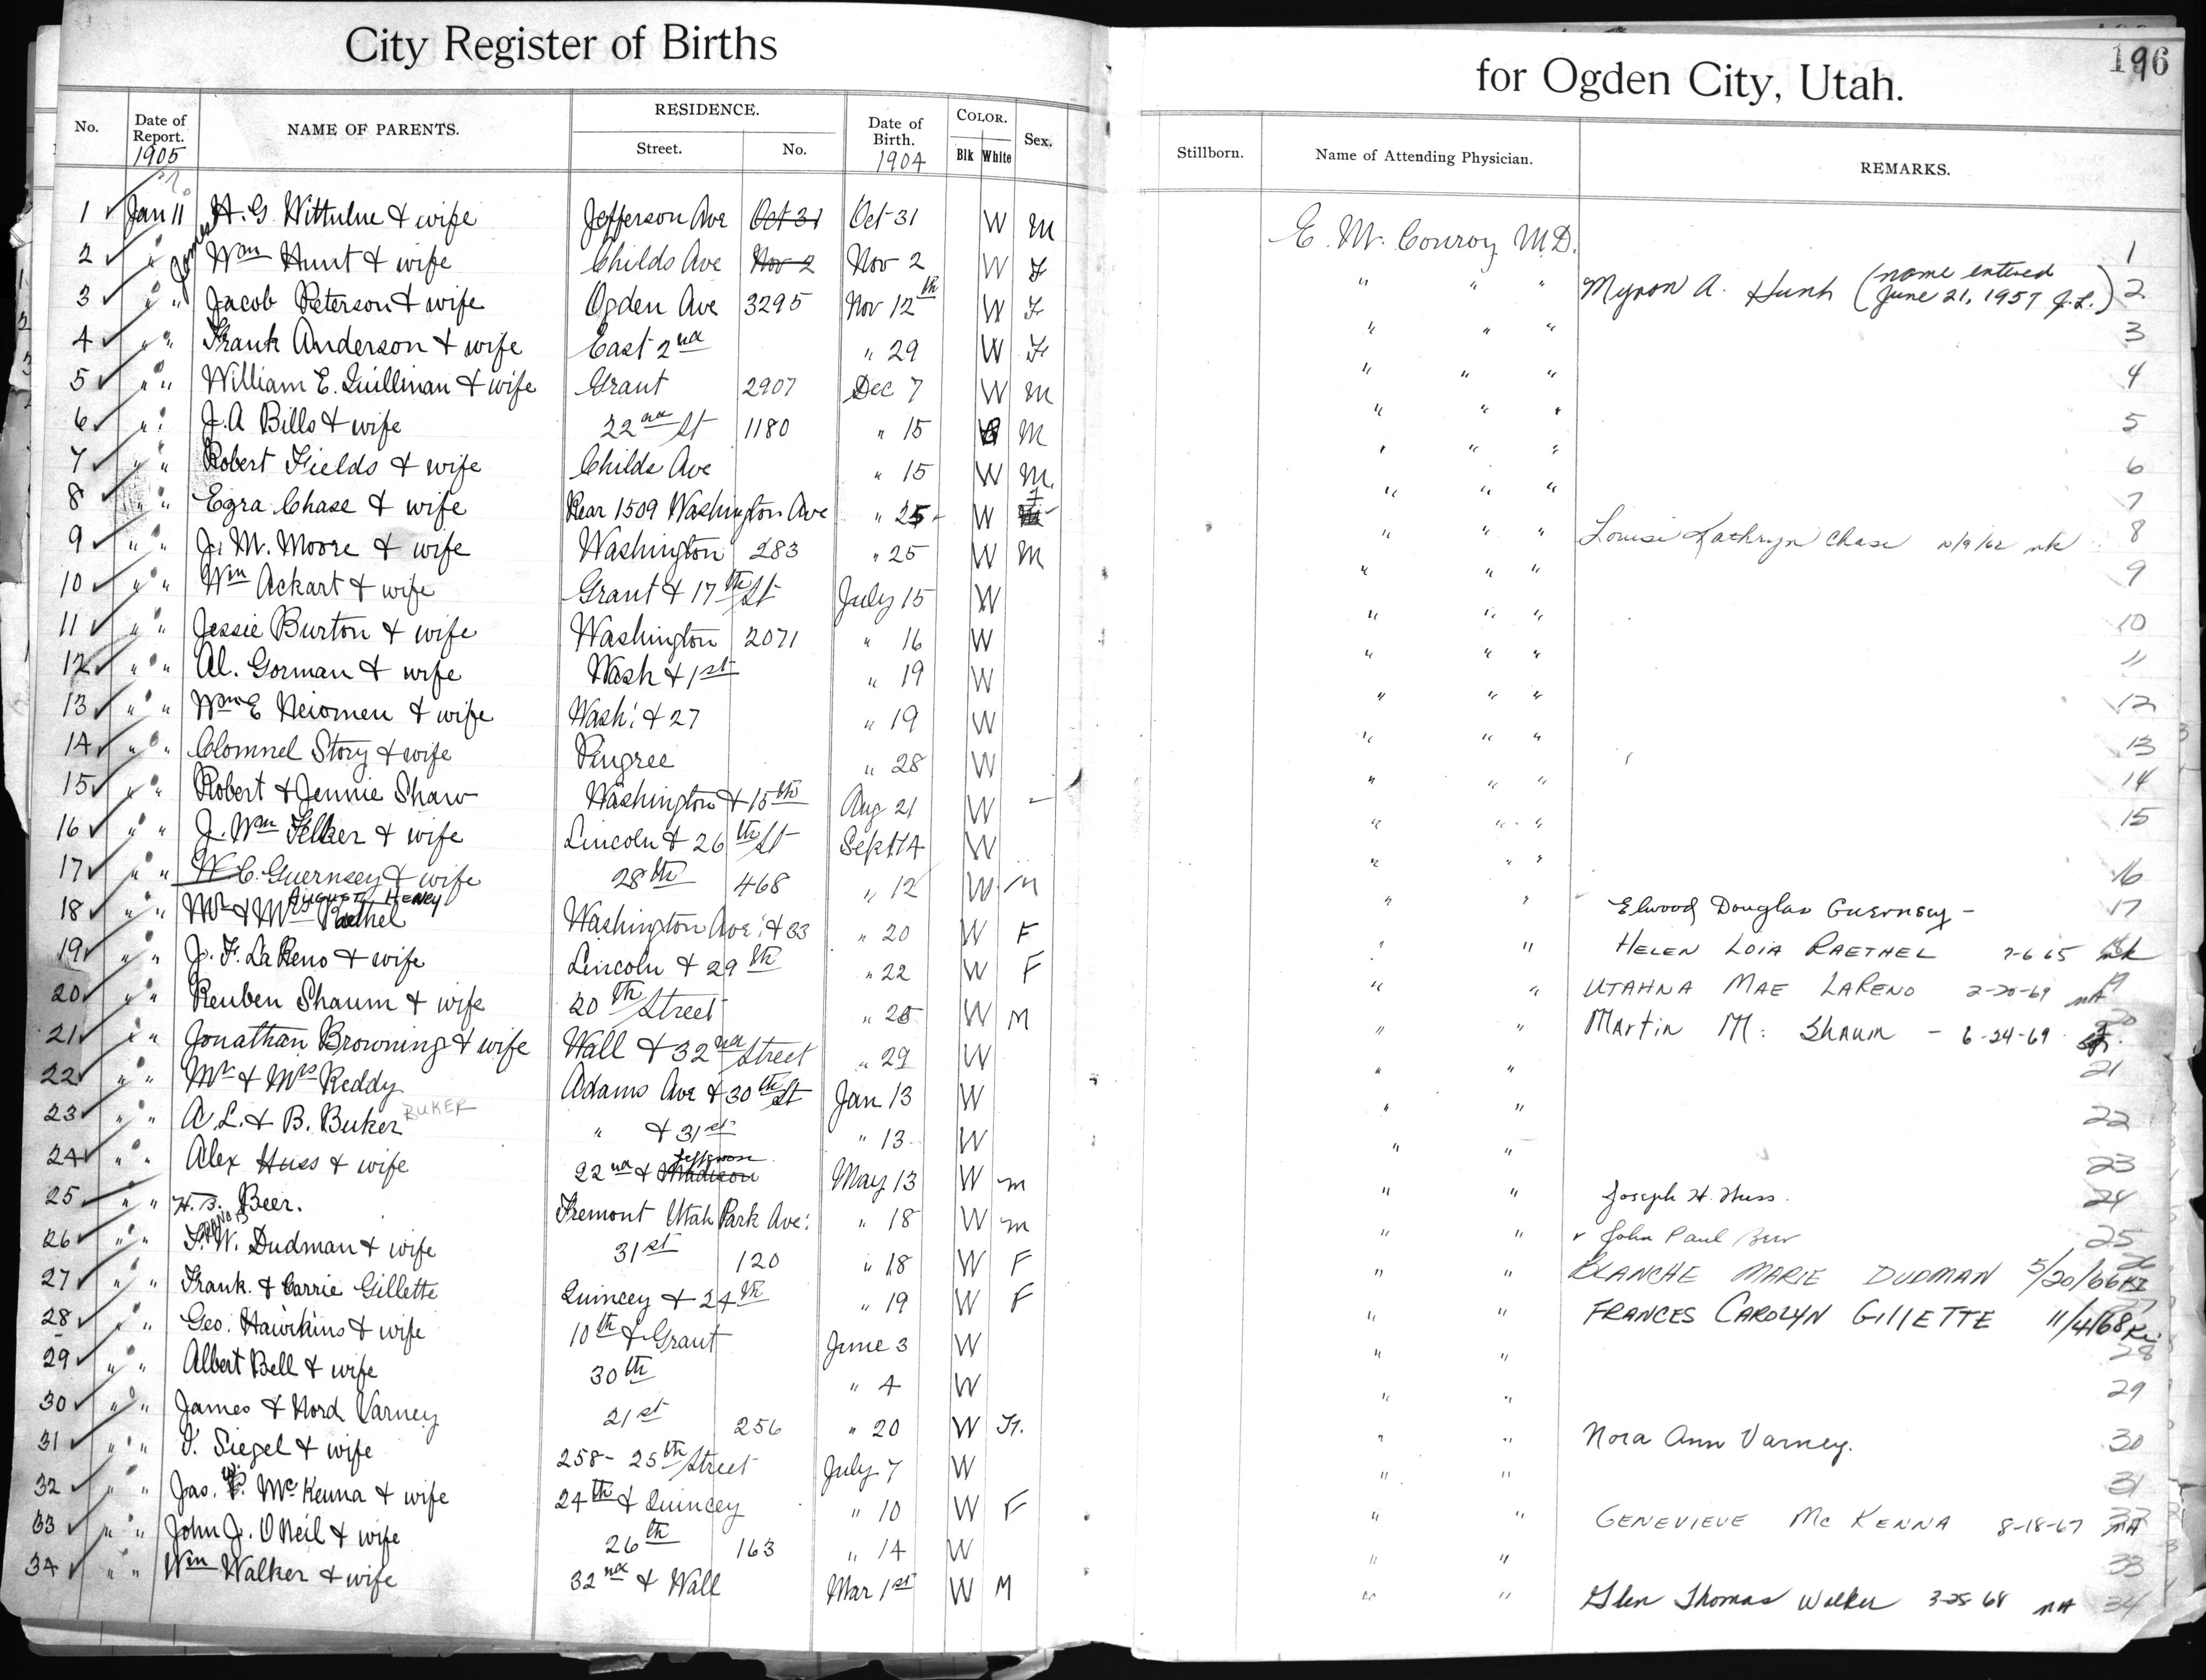 City Register of Births
for Ogden City, Utah.
196
No. Date of Report. 1905 NAME OF PARENTS. RESIDENCE. Street. No. Date of Birth. 1904 COLOR. Blk White Sex.
Stillborn. Name of Attending Physician. REMARKS.
1 Jan 11 H. G. Wittulue & wife Jefferson Ave Oct 31 Oct 31 W M E. M. Conroy M.D. 1
2 " James Wm Hunt & wife Childs Ave Nov 2 Nov 2 W F " " " Myron A. Hunt (name entered June 21, 1957 J.L.) 2
3 " " Jacob Peterson & wife Ogden Ave 3295 Nov 12th W F " " " 3
4 " " Frank Anderson & wife East 2nd " 29 W F " " " 4
5 " " William E. Quillinan & wife Grant 2907 Dec 7 W M " " " 5
6 " " J. A Bills & wife 22nd St 1180 " 15 M " " " 6
7 " " Robert Fields & wife Childs Ave " 15 W M. " " " 7
8 " " Ezra Chase & wife Rear 1509 Washington Ave " 25 W F " " " Louise Kathryn Chase 10/9/62 nk 8
9 " " J. M. Moore & wife Washington 283 " 25 W M " " " 9
10 " " Wm Ackart & wife Grant & 17th St July 15 W " " " 10
11 " " Jessie Burton & wife Washington 2071 " 16 W " " " 11
12 " " Al. Gorman & wife Wash & 1st " 19 W " " " 12
13 " " Wm E Neiomen & wife Wash. & 27 " 19 W " " " 13
14 " " Clomnel Story & wife Pingree " 28 W " " " 14
15 " " Robert & Jennie Shaw Washington & 15th Aug 21 W - " " " 15
16 " " J. Wm Felker & wife Lincoln & 26th St Sept 14 W " " " 16
17 " " W. C. Guernsey & wife 28th 468 " 12 W M " " Elwood Douglas Guernsey - 17
18 " " Mr & Mrs August Henry Raethel Washington Ave. & 33 " 20 W F " " HELEN LOIA RAETHEL 7-6 65 nk
19 " " J. F. LaReno & wife Lincoln & 29th " 22 W F " " UTAHNA MAE LARENO 2-20-69 nA 19
20 " " Reuben Shaum & wife 20th Street " 25 W M " " Martin M. Shaum - 6-24-69 20
21 " " Jonathan Browning & wife Wall & 32nd Street " 29 W " " 21
22 " " Mr & Mrs Reddy Adams Ave & 30th St Jan 13 W " " 22
23 " " A L. & B. Buker BUKER " & 31st " 13 W " " 23
24 " " Alex Huss & wife 22nd & Madison Jefferson May 13 W M " " Joseph H. Huss. 24
25 " " H. S. Beer. Fremont Utah Park Ave. " 18 W M " " John Paul Beer 25
26 " " F. W. Dudman & wife 31st 120 " 18 W F " " BLANCHE MARIE DUDMAN 5/20/66 26
27 " " Frank. & Carrie Gillette Quincey & 24th " 19 W F " " FRANCES CAROLYN GILLETTE 11/4/68
28 " " Geo. Hawkins & wife 10th & Grant June 3 W " " 28
29 " " Albert Bell & wife 30th " 4 W " " 29
30 " " James & Nord Varney 21st 256 " 20 W F. " " Nora Ann Varney. 30
31 " " I. Siegel & wife 258 - 25th Street July 7 W " " 31
32 " " Jas. W. McKenna & wife 24th & Quincey " 10 W F " " GENEVIEVE Mc KENNA 8-18-67 nA 32
33 " " John J. O Neil & wife 26th 163 " 14 W " " 33
34 " " Wm Walker & wife 32nd & Wall Mar 1st W M " " Glen Thomas Walker 3-25 68 nA 34